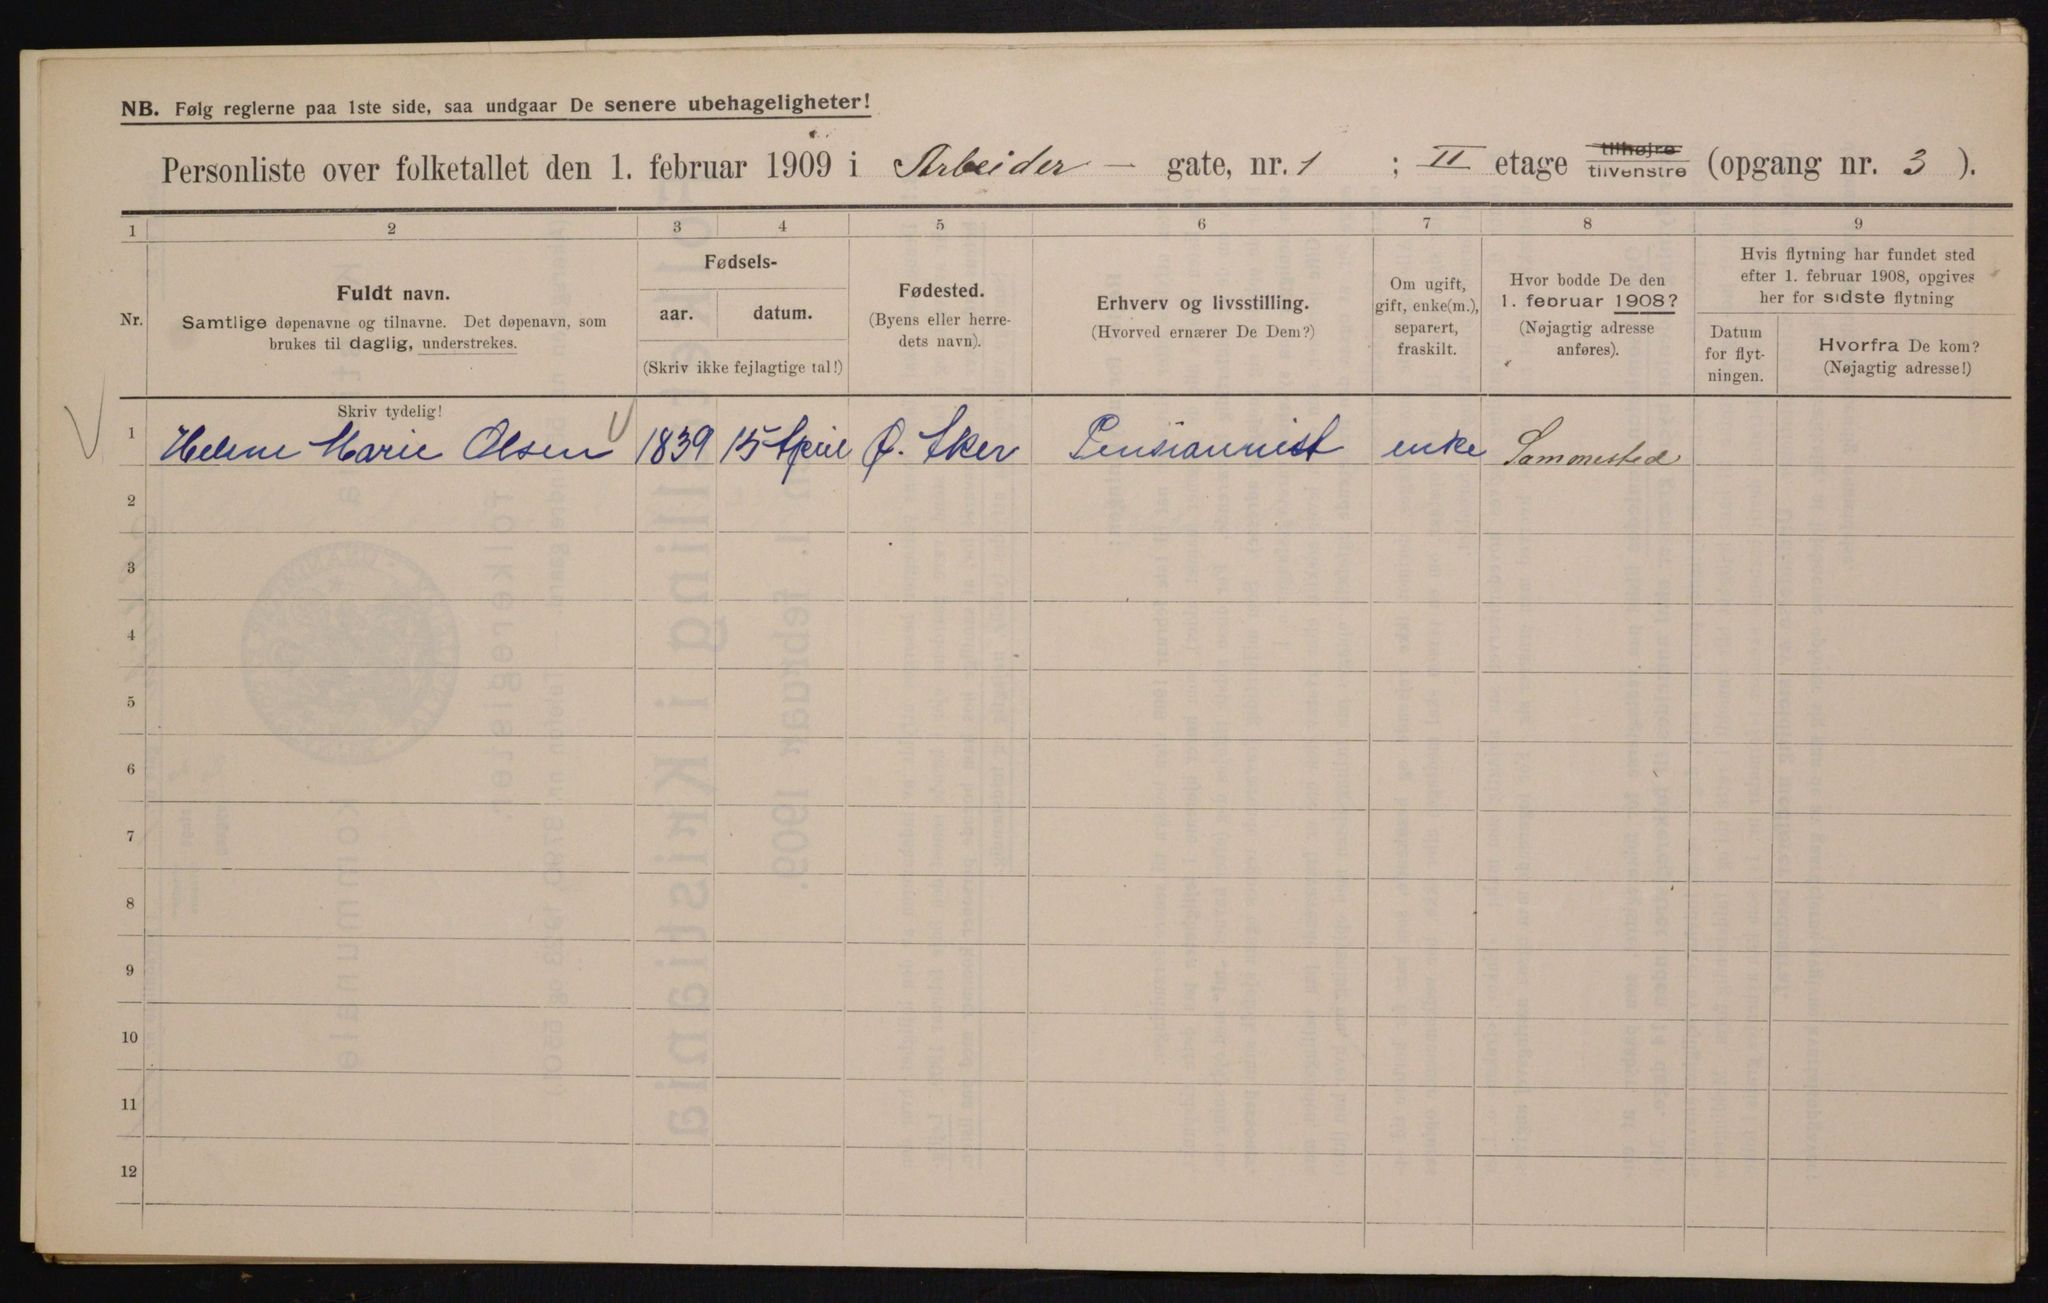 NB. Følg reglerne paa 1ste side, saa undgaar De senere ubehageligheter!
Personliste over folketallet den 1. februar 1909 i Arbeider — gate, nr. 1 ; II etage tilhøjre tilvenstre (opgang nr. 3 ).
1 2 3 4 5 6 7 8 9
Nr.
Fuldt navn.
Samtlige døpenavne og tilnavne. Det døpenavn, som
brukes til daglig, understrekes.
Fødsels-
aar. datum.
(Skriv ikke fejlagtige tal!)
Fødested.
(Byens eller herre-
dets navn).
Erhverv og livsstilling.
(Hvorved ernærer De Dem?)
Om ugift,
gift, enke(m.),
separert,
fraskilt.
Hvor bodde De den
1. februar 1908?
(Nøjagtig adresse
anføres).
Hvis flytning har fundet sted
efter 1. februar 1908, opgives
her for sidste flytning
Datum
for flyt-
ningen.
Hvorfra De kom?
(Nøjagtig adresse!)
Skriv tydelig!
1 Helene Marie Olsen 1839 15 April Ø. Aker Pensiannist enke Sammested
2
3
4
5
6
7
8
9
10
11
12